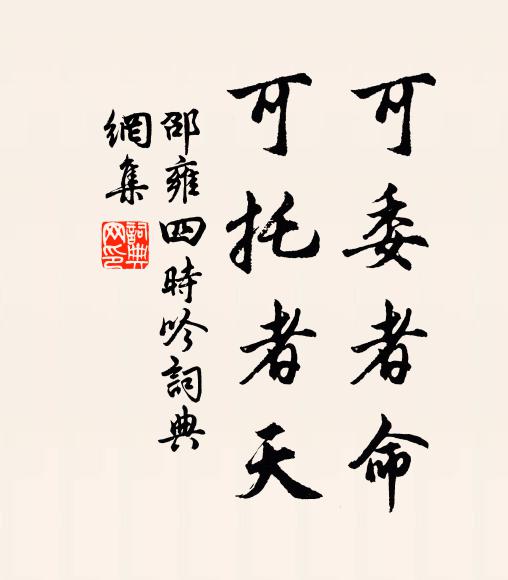 可委者命
可托者天
邵雍四時吟詞典
網集
詞典
网印